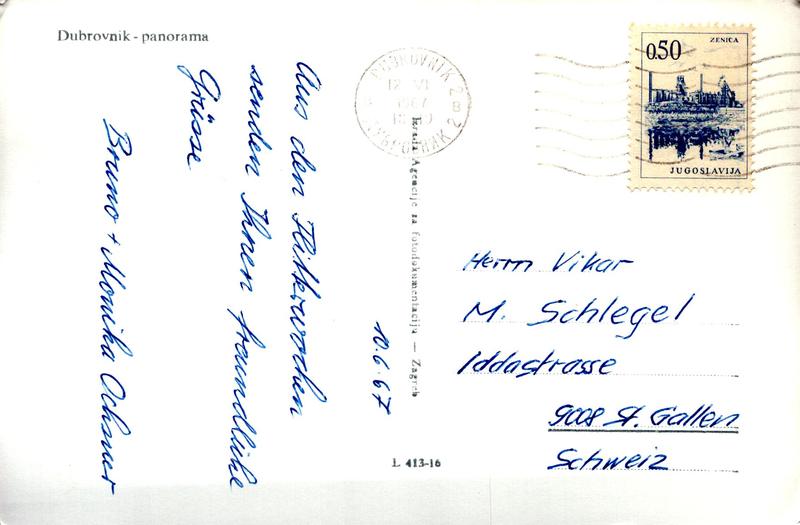 Dubrovnik - panorama
Aus den Flitterwochen
senden Ihnen freundliche
Grüsse
Bruno + Monika Ochsner
10.6.67
Izrada Agencije za fotodokumentaciju — Zagreb
L 413-16
DUBROVNIK 2
12 VI
1967
ДУБРОВНИК 2
ZENICA
0.50
JUGOSLAVIJA
Herrn Vikar
M. Schlegel
Iddastrasse
9008 St. Gallen
Schweiz